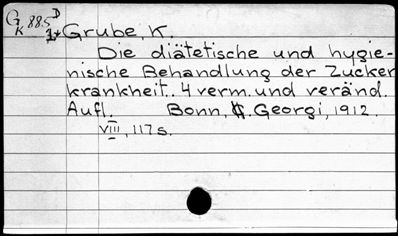 G K 885 D
1* Grube, K.
Die diätetische und hygie-
nische Behandlung der Zucker
krankheit. 4 verm. und veränd.
Aufl. Bonn, C. Georgi, 1912.
VIII, 117 s.